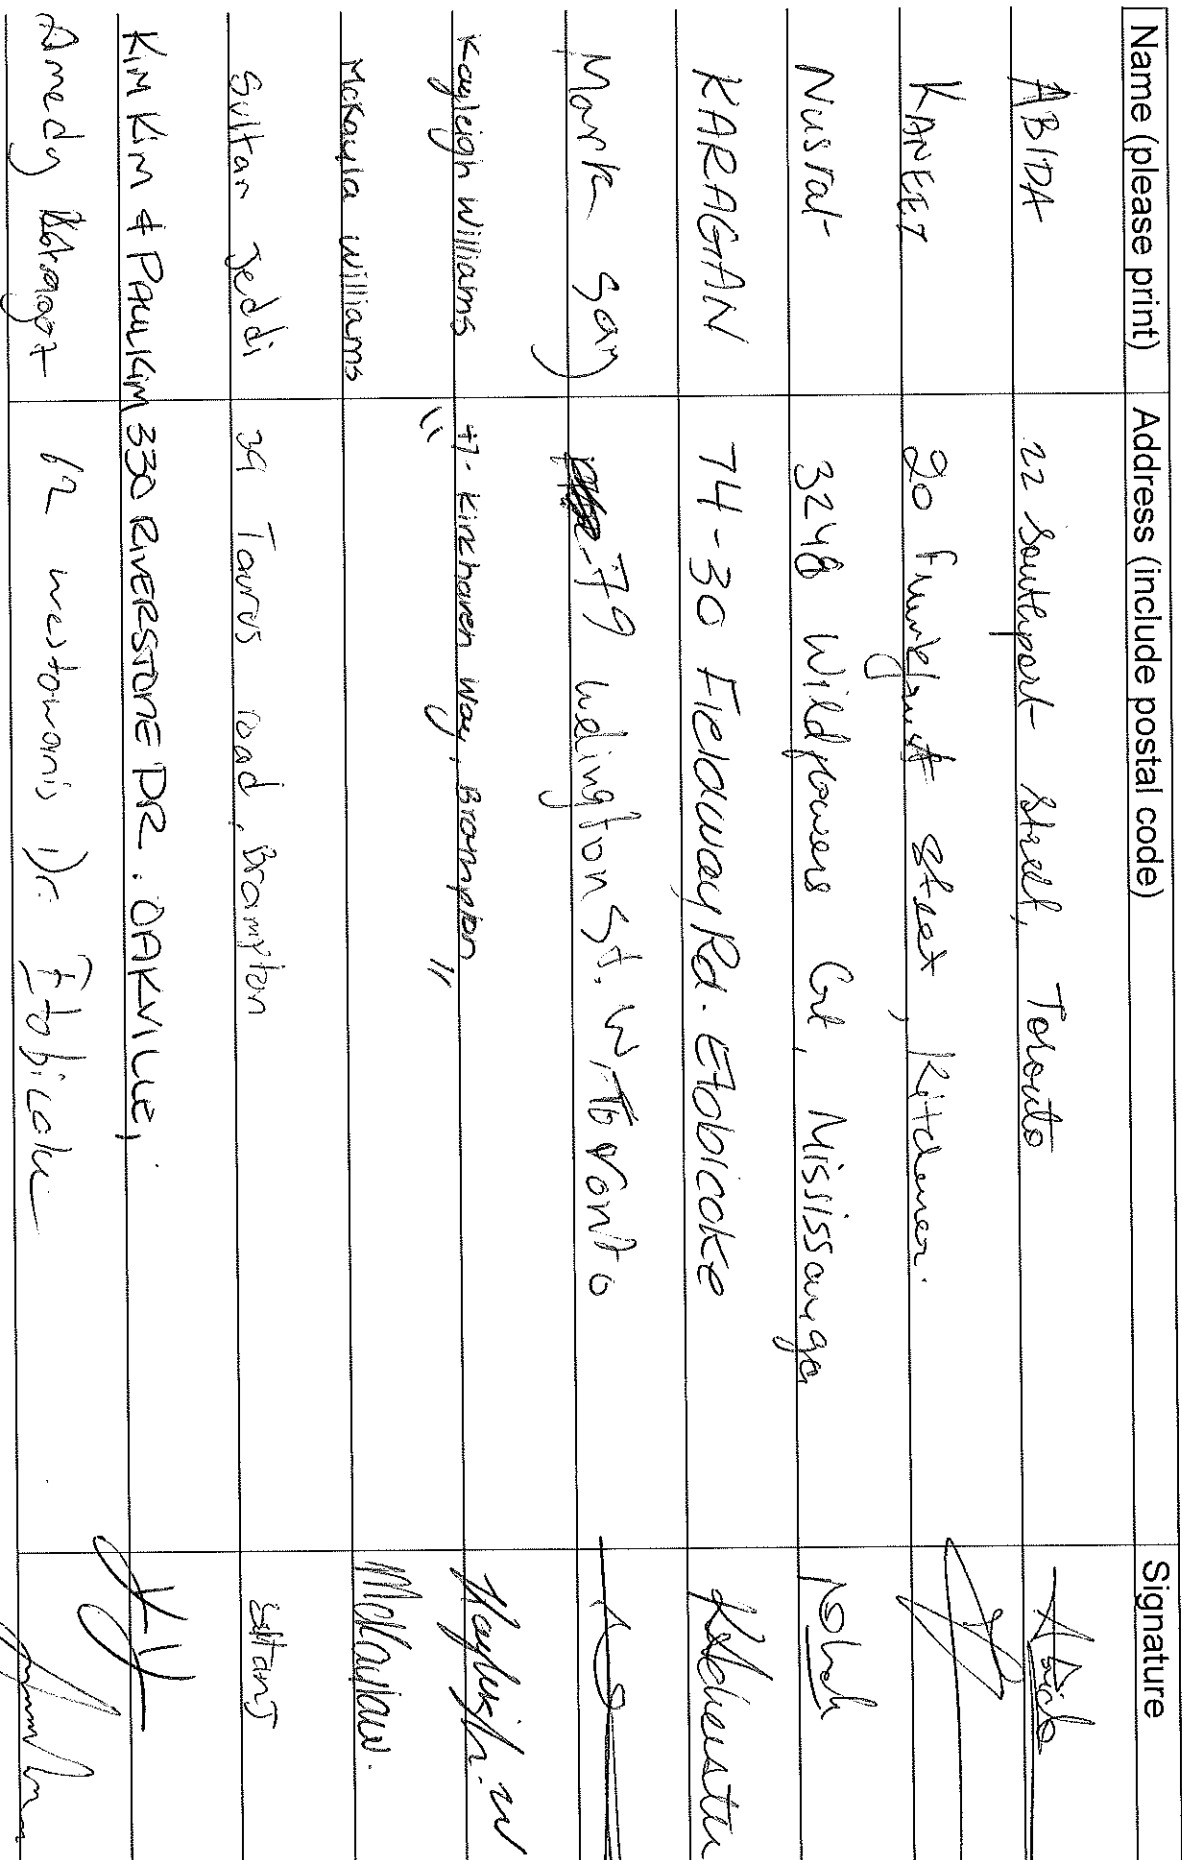 Name (please print) Address (include postal code) Signature
ABIDA 22 Southport Street, Toronto Abida
KANEET 20 Street, Kitchener.
Nusrat 3248 Wildflowers Crt, Mississauga
KARAGAN 74-30 Fieldway Rd. Etobicoke
Mark Sam 79 Welington St. W Toronto
Kayleigh Williams 47- Kirkhaven Way, Brampton Kayleigh.W
McKayla Williams " " McKaylaW.
Sultan Jeddi 39 Taurus road, Brampton SultanJ
KIM KIM & PAUL KIM 330 RIVERSTONE DR. OAKVILLE,
Amedy 62 Dr. Etobicoke